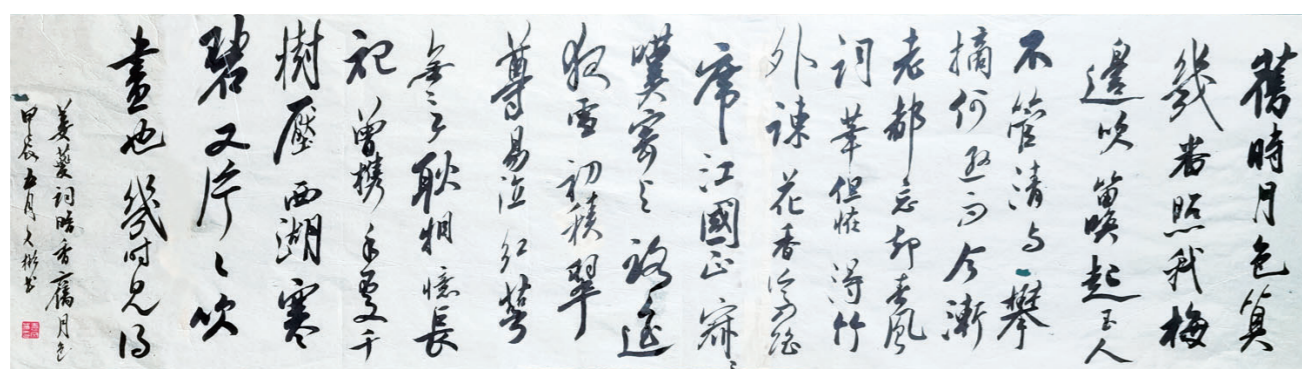 舊時月色算
幾番照我梅
邊吹笛喚起玉人
不管清与攀
摘何遜而今漸
老都忘却春風
詞筆但恠得竹
外疎花香冷入瑶
席江國正寂々
嘆寄与路遥
夜雪初積翠
尊易泣紅萼
無言耿相憶長
記曾攜手處千
樹壓西湖寒
碧又片々吹
盡也幾时見得
姜夔詞暗香舊月色
甲辰五月文彬书